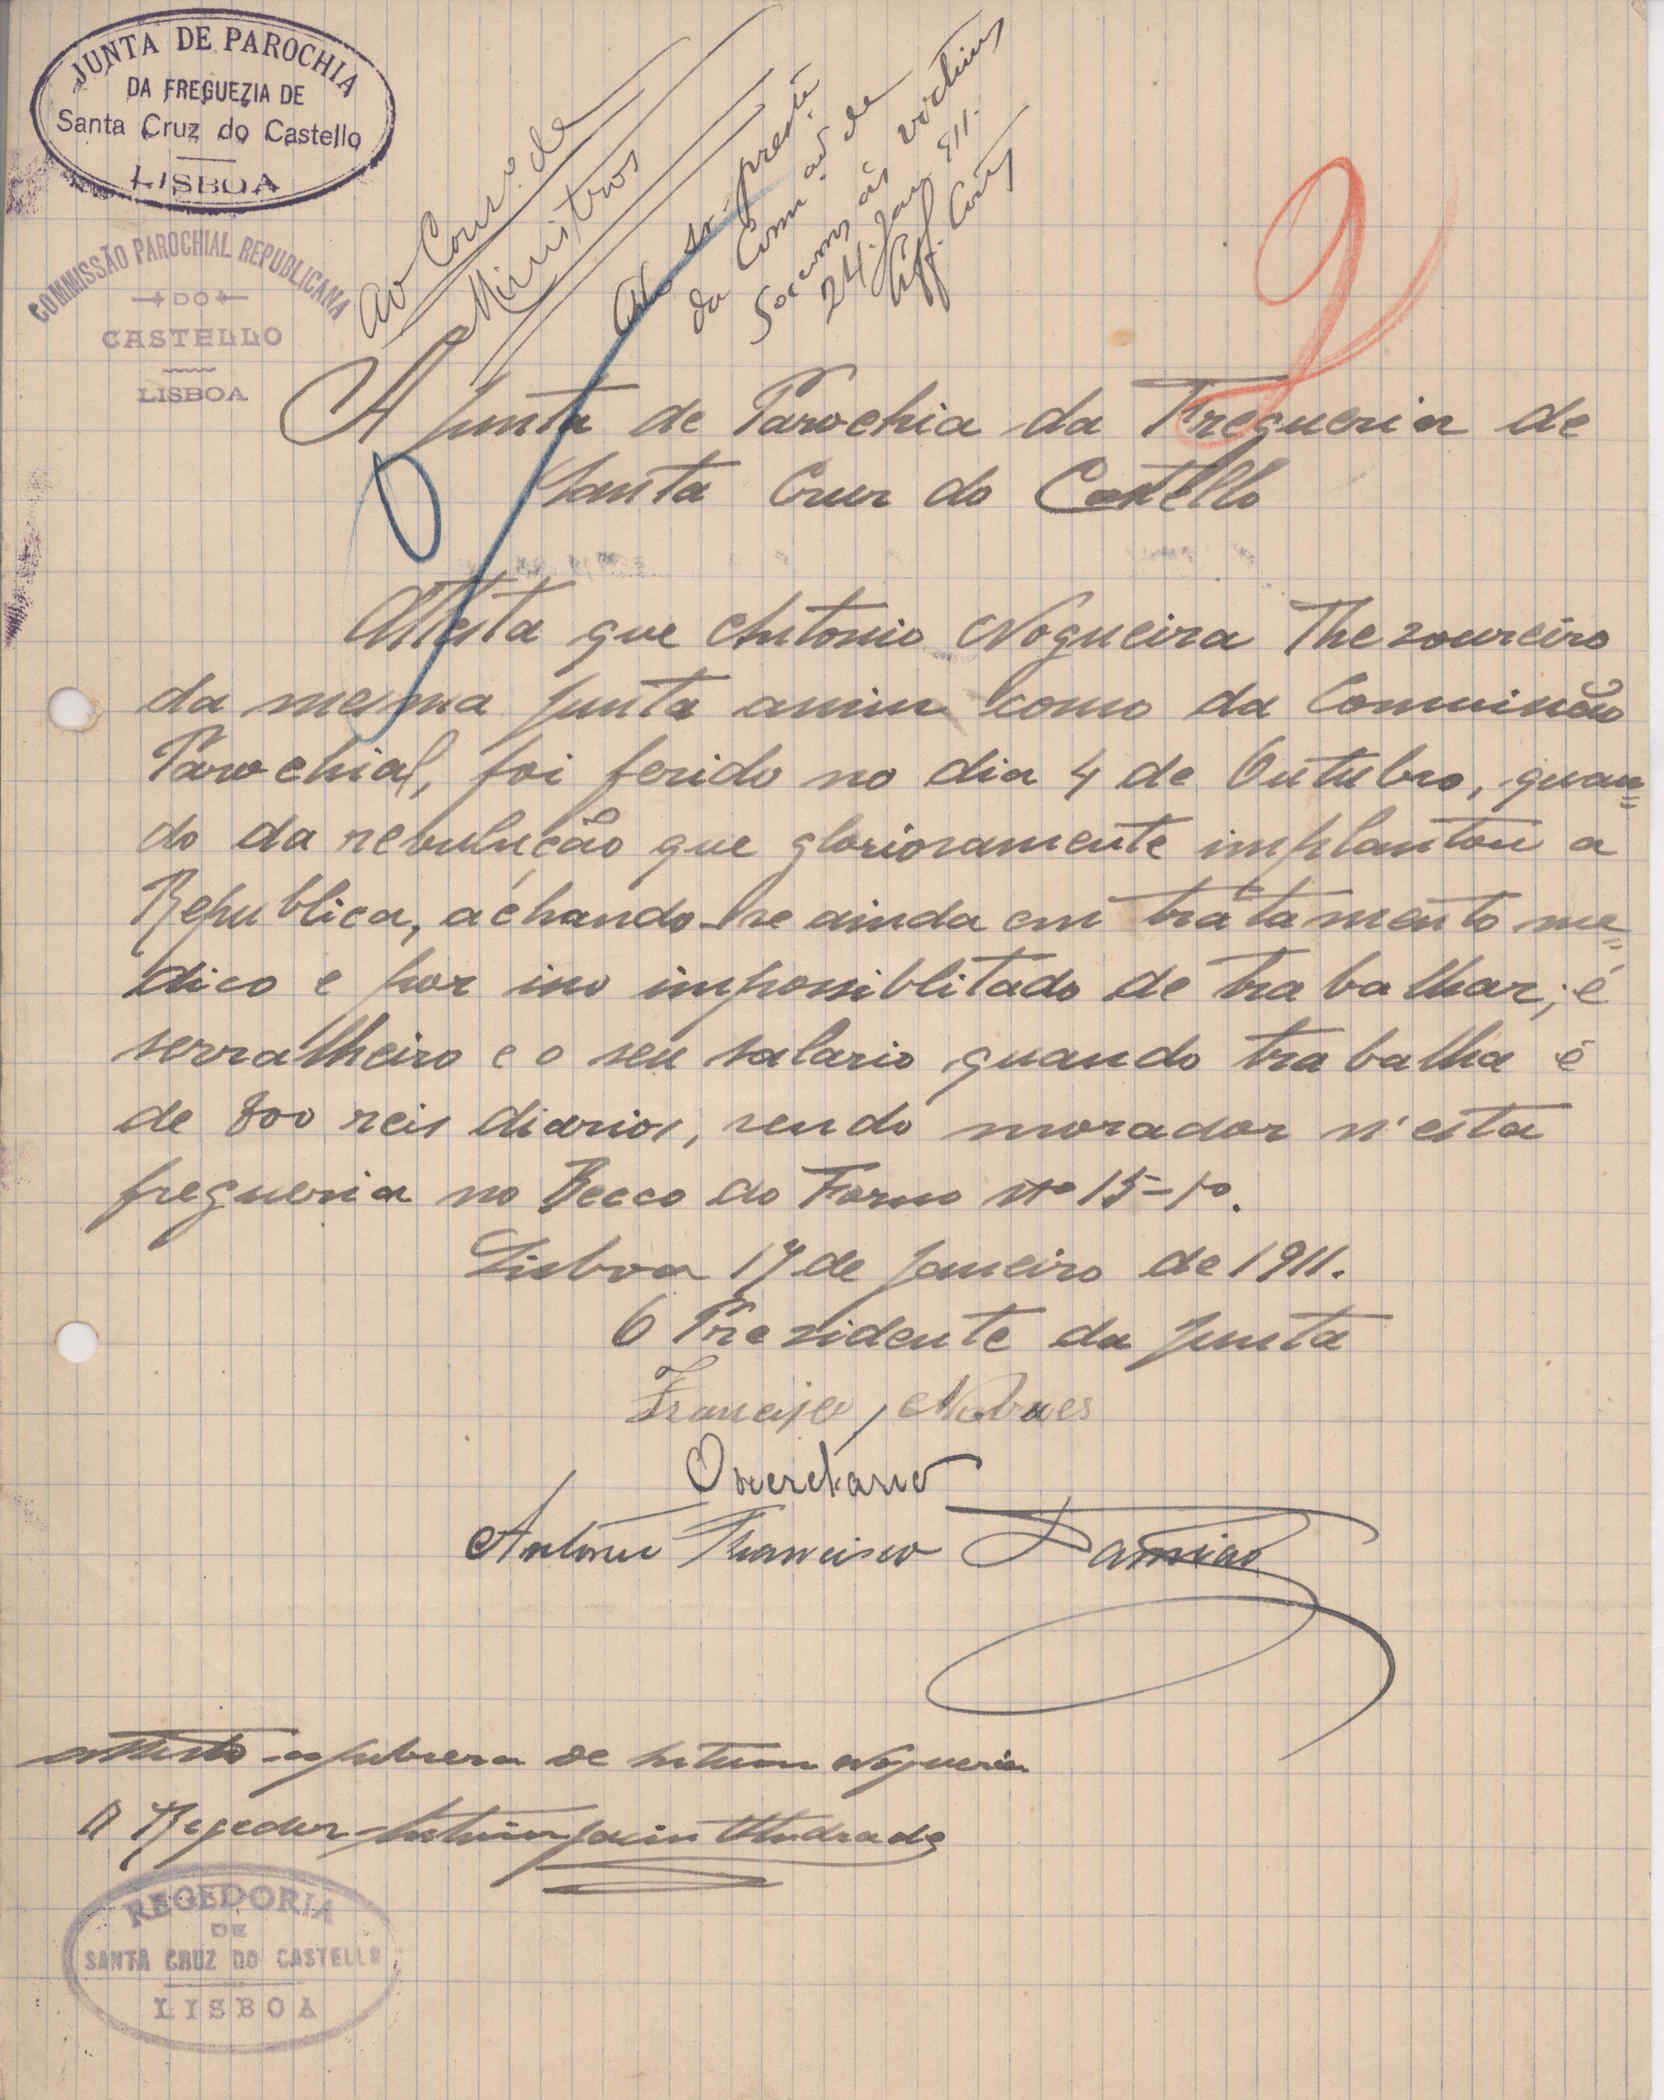 JUNTA DE PAROCHIA
DA FREGUEZIA DE
Santa Cruz do Castello
LISBOA
COMMISSÃO PAROCHIAL REPUBLICANA
DO
CASTELLO
LISBOA
Ao Cons.º de
Ministros
Ao sr. preste
da Com. ão de
Socorros ás victimas
24. Jan. 911.
Aff. Costa
A Junta de Parochia da Freguezia de
Santa Cruz do Castello
Attesta que Antonio Nogueira Thezoureiro
da mesma Junta assim como da Commissão
Parochial, foi ferido no dia 4 de Outubro, quan=
do da revulução que gloriosamente implantou a
Republica, achando-se ainda em tratamento me=
dico e por isso impossiblitado de trabalhar; é
serralheiro e o seu salario quando trabalha é
de 800 reis diarios, sendo morador n'esta
freguezia no Becco do Forno nº 15-1º.
Lisboa 17 de Janeiro de 1911.
O Prezidente da Junta
Francisco Novaes
O secretario
Antonio Francisco Damião
Attesto a pobreza de Antonio Nogueira
O Regedor Antonio Andrade
REGEDORIA
DE
SANTA CRUZ DO CASTELLO
LISBOA